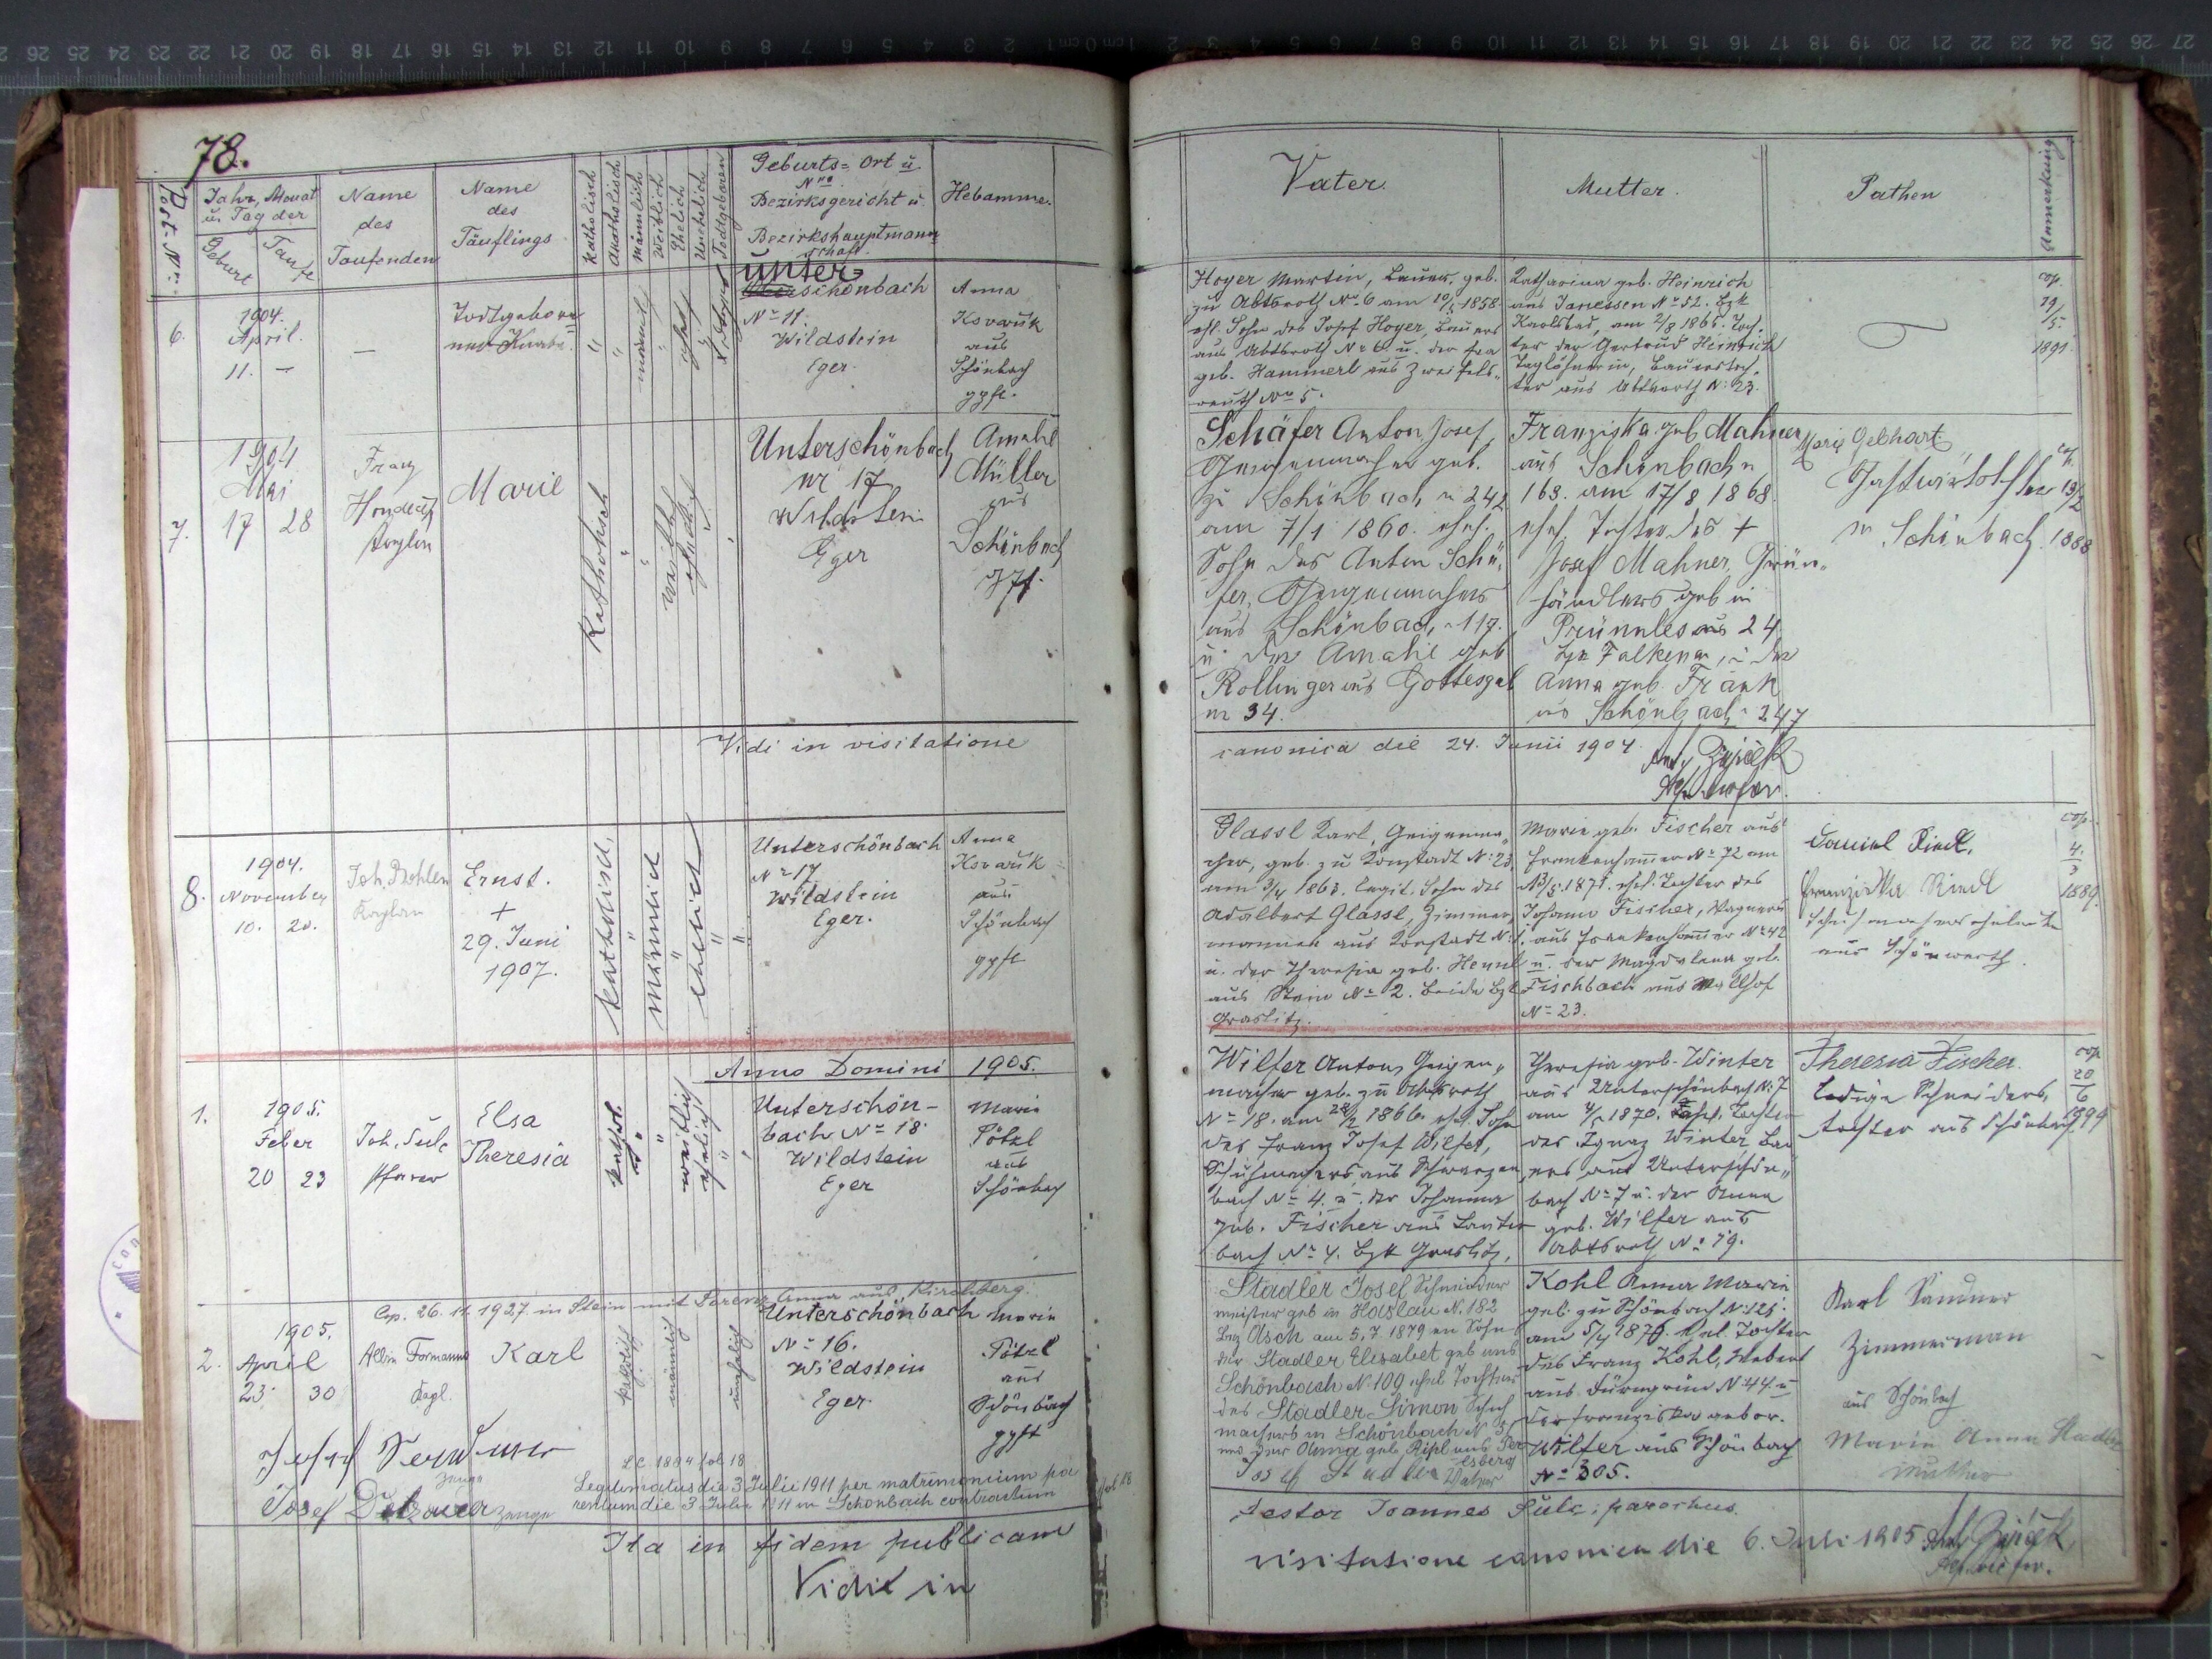 78.
Post-Nro.
Jahr, Monat
u. Tag der
Geburt
Taufe
Name
des
Taufenden
Name
des
Täuflings
Katholisch
Akatholisch
Männlich
Weiblich
Ehelich
Unehelich
Todtgeboren
Geburts= Ort u.
Nro.
Bezirksgericht u.
Bezirkshauptmann
schaft.
Hebamme.
6.
1904.
April.
11. —
—
Todtgebore
ner Knabe.
Unter
schönbach
No 11.
Wildstein
Eger.
Anna
Kovařik
aus
Schönbach
gpft.
7.
1904
Mai
17 28
Franz
Kaplan
Marie
Katholisch
weiblich
ehelich
Unterschönbach
nr 17
Wildstein
Eger
Amalie
Müller
aus
Schönbach
Vidi in visitatione
8.
1904.
November
10. 20.
Joh. Bohlen
Kaplan
Ernst.
+
29. Juni
1907.
katholisch
männlich
ehelich
Unterschönbach
No 17
Wildstein
Eger.
Anna
Kovařik
aus
Schönbach
gpft
Anno Domini 1905.
1.
1905.
Feber
20 23
Joh. Sulc
Pfarrer
Elsa
Theresia
kathol.
weiblich
ehelich
Unterschön-
bach No 18.
Wildstein
Eger
Marie
Pötzl
aus
Schönbach
Cop. 26. 11. 1927 in Stein mit Lorenz Anna aus Kirchberg.
2.
1905.
April
23. 30
Albin Formanns
Kapl.
Karl
katholisch
männlich
unehelich
Unterschönbach
No 16.
Wildstein
Eger.
Marie
Pötzl
aus
Schönbach
gpft
Josef
Zeuge
Josef
Zeuge
fol 18
Legitimatus die 3 Julii 1911 per matrimonium pa
rentum die 3 Julii 1911 in Schönbach contractum
Ita in fidem publicam
Vidit in
Vater.
Mutter.
Pathen
Anmerkung
Hoyer Martin, Bauer, geb.
zu Abtsroth No 6 am 10/ 1858
ehl. Sohn des Josef Hoyer, Bauers
aus Abtsroth No 6 u. der Eva
geb. Hammerl aus Zweifels-
reuth No 5.
Katharina geb. Heinrich
aus Janessen No 52. Bzk
Karlsbad, am 2/8 1865. Toch-
ter der Gertrud Heinrich
Taglöhnerin, Bauerstoch-
ter aus Abtsroth N: 23.
cop.
19/
5.
1891.
Schäfer Anton Josef
Geigenmacher geb.
zu Schönbach n 242
am 7/1 1860. ehel.
Sohn des Anton Schä-
fer, Geigenmachers
aus Schönbach n 117.
u. der Amalie geb
Rollinger aus Gottesgab
nr 34.
Franziska geb Mahner
aus Schönbach n
163. am 17/8 1868.
ehel Tochter des +
Josef Mahner, Grün-
händlers geb in
Prünnles aus 24
bzk Falkenau, u. der
Anna geb. Fränk
aus Schönbach n 247
Marie Gebhart
Gastwirthstochter
in Schönbach
cop.
13/2
1888
canonica die 24. Junii 1904.
Glassl Karl, Geigenma-
cher, geb. zu Konstadt N: 23
am 3/4 1863. legit. Sohn des
Adalbert Glassl, Zimmer-
mannes aus Konstadt N: 1.
u. der Theresia geb. Heunl
aus Stein No 2. beide Bzk
Graslitz.
Marie geb. Fischer aus
Frankenhammer No 72 am
13/5. 1871. ehel. Tochter des
Johann Fischer, Wagners
aus Frankenhammer No 42
u. der Magdalena geb.
Fischbach aus Mallhof
No 23.
Daniel Riedl,
Franziska Riedl
Schuhmachers eheleute
aus Schönwerth.
cop.
4.
3
1889.
Wilfer Anton, Geigen-
macher geb. zu Abtsroth
No 18. am 28/2 1866. ehel. Sohn
des Franz Josef Wilfer,
Schuhmachers aus Schwarzen-
bach No 4. u. der Johanna
geb. Fischer aus Lauter-
bach No 4. Bzk Graslitz.
Theresia geb. Winter
aus Unterschönbach N: 7
am 4/5 1870. Ehel. Tochter
des Ignaz Winter, Bau-
ers aus Unterschön-
bach No 7 u. der Anna
geb. Wilfer aus
Abtsroth No 19.
Theresia Fischer.
ledige Schneiders-
tochter aus Schönbach
cop
20
6
1899
Stadler Josef Schneider
meister geb in Haslau N. 182
Bez Asch am 5. 7. 1879 en Sohn
der Stadler Elisabet geb aus
Schönbach N. 109 ehel Tochter
des Stadler Simon Schuh
machers in Schönbach N 5
und der Anna geb. Ripl aus Per
esberg
Josef Stadler Vater
Kohl Anna Marie
geb. zu Schönbach N: 125.
am 5/4 1876. ehel. Tochter
des Franz Kohl, Webers
aus Dürngrün N: 44. u
der Franziska gebor.
Wilfer aus Schönbach
No 305.
Karl Sandner
Zimmermann
aus Schönbach
Marie Anna Stadler
Mutter
testor Joannes Sulc; parochus.
visitatione canonica die 6. Juli 1905